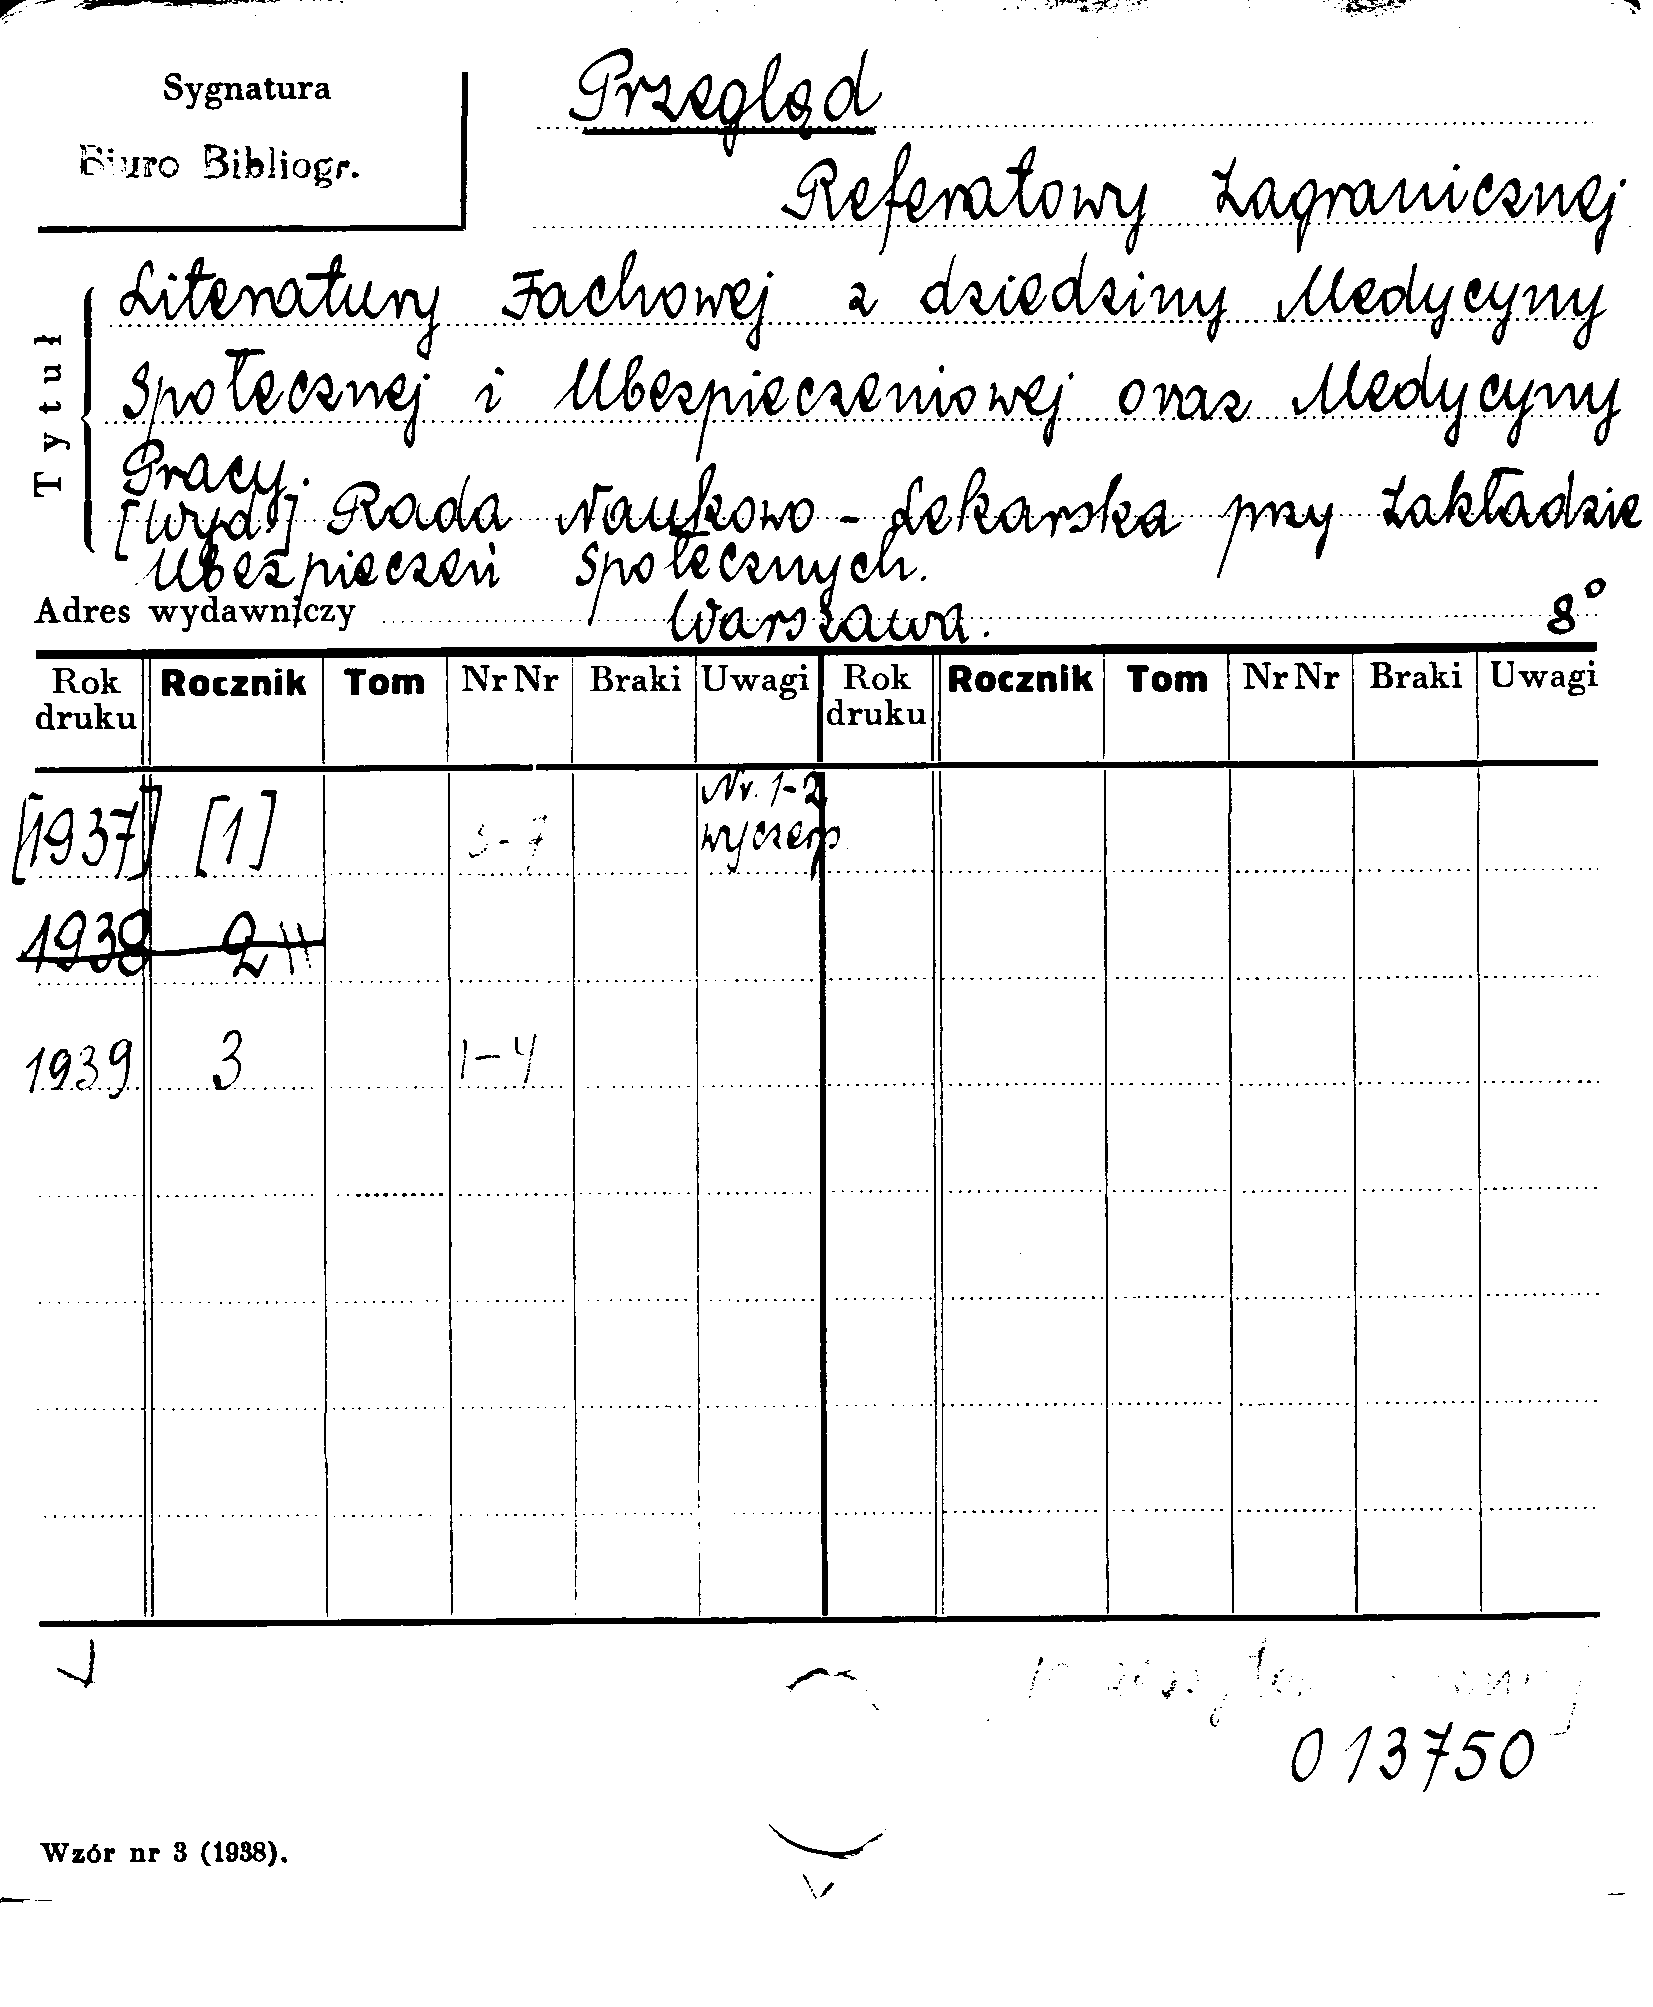 Sygnatura
Biuro Bibliogr.
Przegląd
Referatowy Zagranicznej
Tytuł
Literatury Fachowej z dziedziny Medycyny
Społecznej i Ubezpieczeniowej oraz Medycyny
Pracy.
[Wyd.] Rada Naukowo-Lekarska przy Zakładzie
Ubezpieczeń Społecznych.
Adres wydawniczy Warszawa. 8°
Rok druku Rocznik Tom Nr Nr Braki Uwagi Rok druku Rocznik Tom Nr Nr Braki Uwagi
[1937] [1] 3-7 Nr. 1-2 wyczerp
1938 2
1939 3 1-4
013750
Wzór nr 3 (1938).